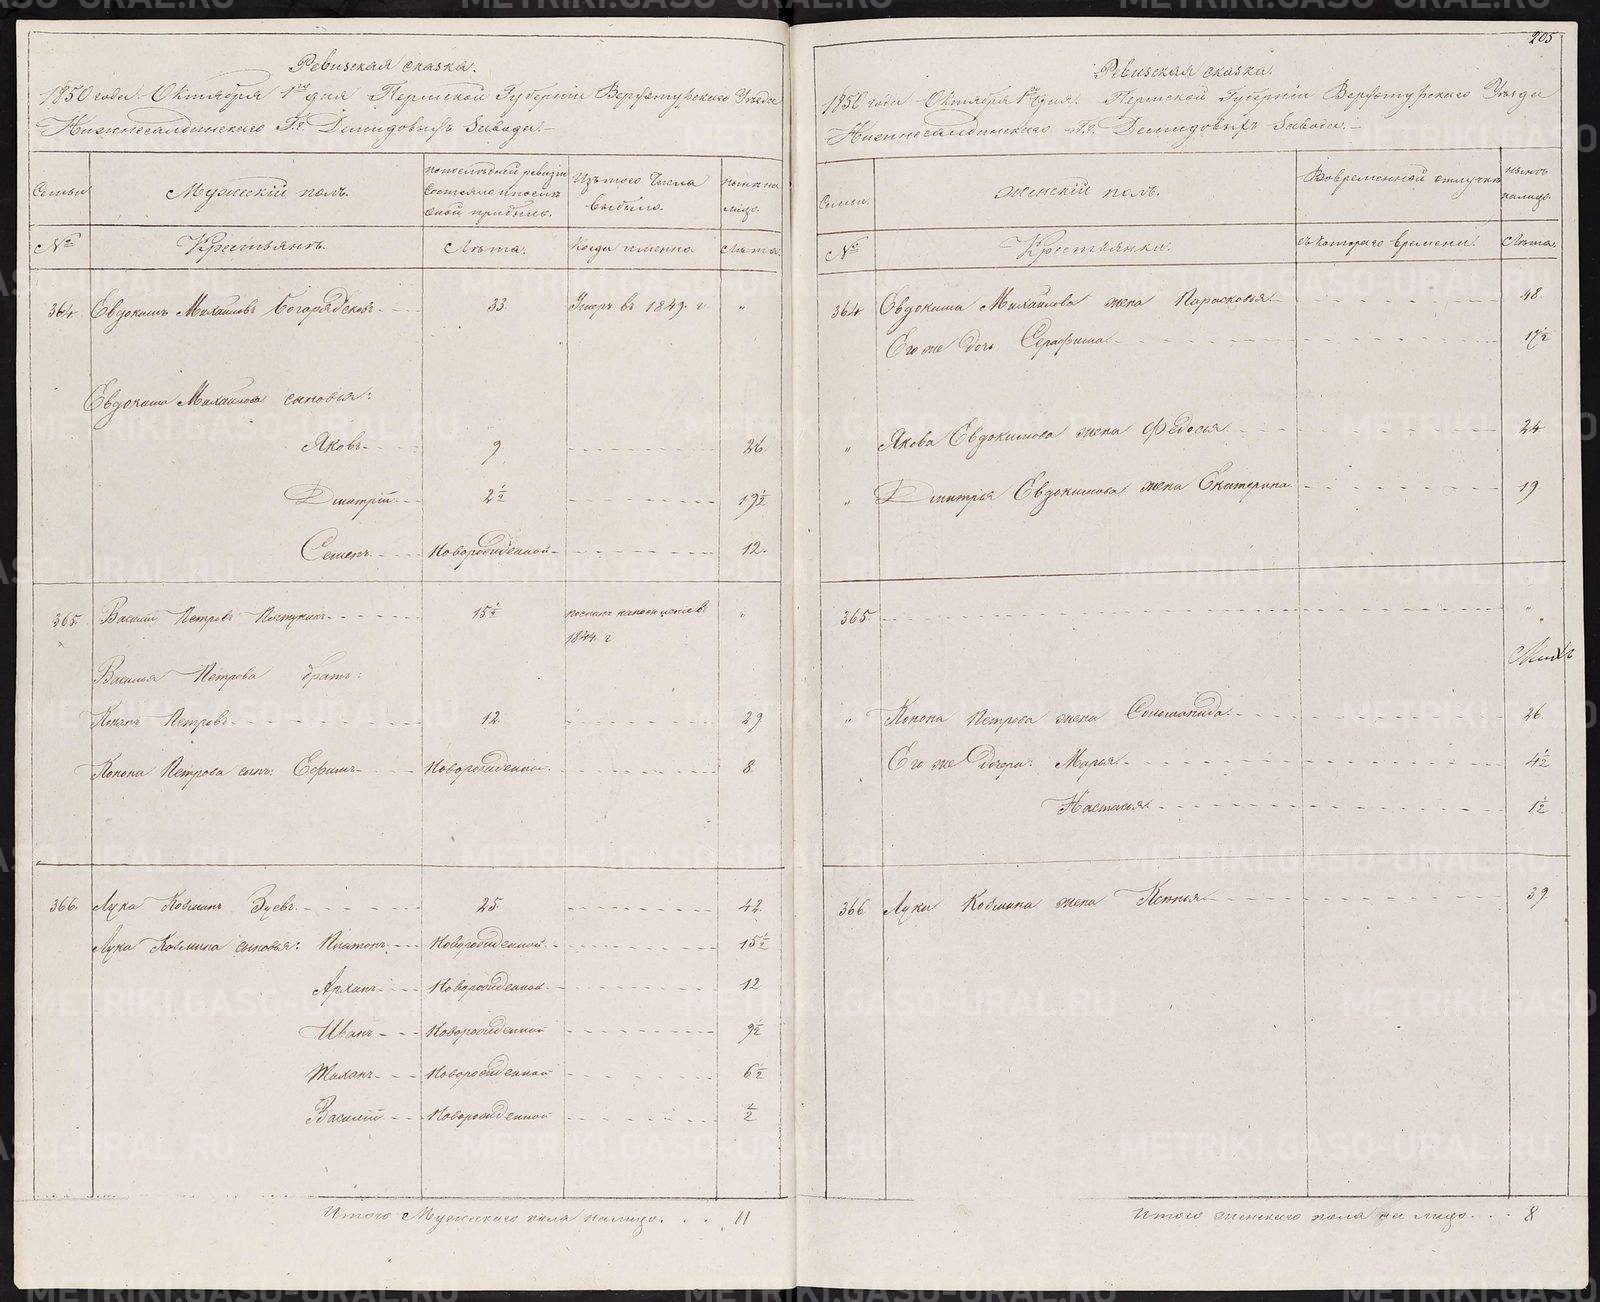 Ревизская сказка.
1850 года Октября 1го дня Пермской Губернiи Верхотурскаго Уѣзда
Нижнесалдинскаго Г.г. Демидовыхъ Завода.
Семьи
Мужескiй полъ.
По последней ревизiи состояло и после оной прибыло.
Изъ того числа выбыло.
Ныне на лицо.
№
Крестьянъ.
Лѣта.
Когда именно.
Лѣта.
364. Евдокимъ Михайловъ 33 Умеръ въ 1849. г. "
Евдокима Михайлова сыновья:
Яковъ 9 26.
Дмитрiй 2½ 19½
Семенъ Новорожденной 12.
365. Василiй Петровъ 15½ "
1844. г
Василья Петрова братъ:
Кононъ Петровъ 12. 29
Конона Петрова сынъ: Ефимъ Новорожденной 8.
366. Лука Козминъ Зуевъ 25. 42.
Луки Козмина сыновья: Платонъ Новорожденной 15½
Архипъ Новорожденной 12
Иванъ Новорожденной 9½
Новорожденной 6½
Василiй Новорожденной ½
Итого Мужескаго пола налицо. 11
205
Ревизская сказка.
1850 года Октября 1го дня. Пермской Губернiи Верхотурскаго Уѣзда
Нижнесалдинскаго Г.г. Демидовыхъ Завода.
Семьи.
Женскiй полъ.
Во временной отлучке
Ныне налицо.
№
Крестьянки.
съ котораго времени.
Лѣта.
364 Евдокима Михайлова жена Парасковья 48.
Его же дочь Серафима 17½
" Якова Евдокимова жена Федосья 24
" Дмитрiя Евдокимова жена Екатерина 19
365. "
" Конона Петрова жена Соломонида 26.
Его же дочери: Марья 4½
Настасья 1½
366 Луки Козмина жена Ксенья 39.
Итого женскаго пола на лицо. 8
METRIKI.GASO-URAL.RU